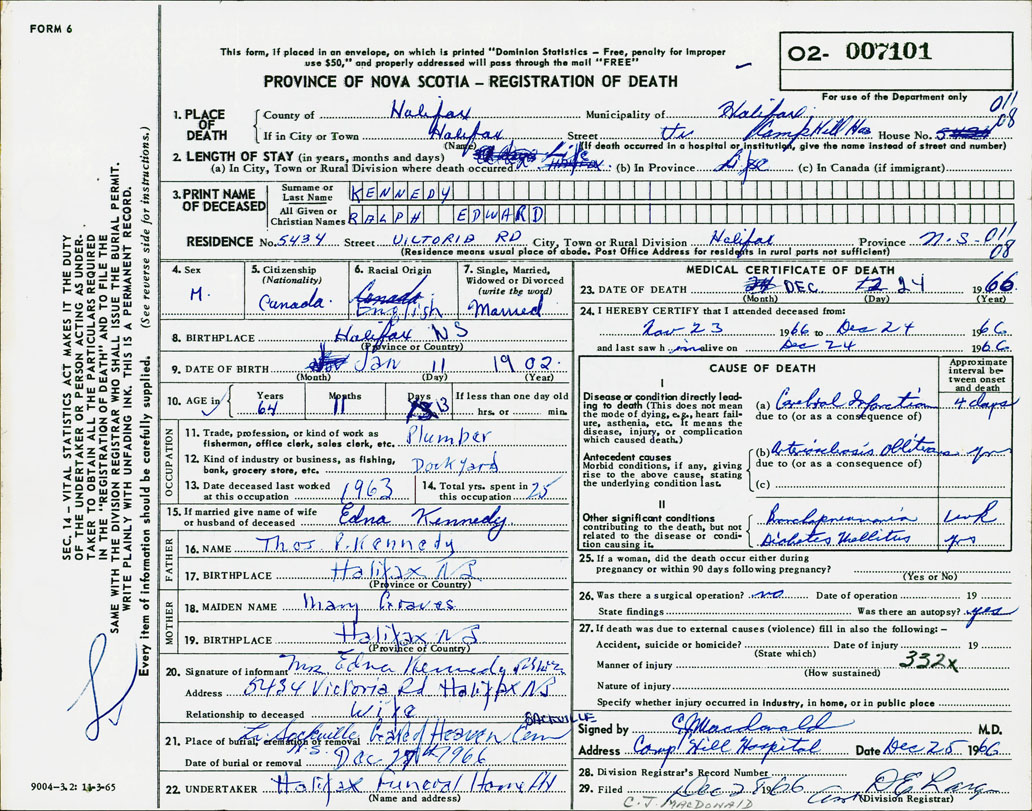 FORM 6
This form, if placed in an envelope, on which is printed "Dominion Statistics – Free, penalty for improper
use $50," and properly addressed will pass through the mail "FREE"
02- 007101
PROVINCE OF NOVA SCOTIA – REGISTRATION OF DEATH
For use of the Department only
011
08
1. PLACE OF DEATH
County of Halifax Municipality of Halifax
If in City or Town Halifax Street Camp Hill Hos House No.
(Name) (If death occurred in a hospital or institution, give the name instead of street and number)
2. LENGTH OF STAY (in years, months and days)
(a) In City, Town or Rural Division where death occurred Life (b) In Province Life (c) In Canada (if immigrant)
3. PRINT NAME OF DECEASED
Surname or Last Name KENNEDY
All Given or Christian Names RALPH EDWARD
RESIDENCE No. 5434 Street VICTORIA RD City, Town or Rural Division Halifax Province N.S. 011
08
(Residence means usual place of abode. Post Office Address for residents in rural parts not sufficient)
4. Sex M.
5. Citizenship (Nationality) Canada.
6. Racial Origin Canada English
7. Single, Married, Widowed or Divorced (write the word) Married
8. BIRTHPLACE Halifax NS
(Province or Country)
9. DATE OF BIRTH Jan 11 1902.
(Month) (Day) (Year)
10. AGE in Years 64 Months 11 Days 13 If less than one day old
hrs. or min.
OCCUPATION
11. Trade, profession, or kind of work as fisherman, office clerk, sales clerk, etc. Plumber
12. Kind of industry or business, as fishing, bank, grocery store, etc. Dockyard
13. Date deceased last worked at this occupation 1963
14. Total yrs. spent in this occupation 25
15. If married give name of wife or husband of deceased Edna Kennedy
FATHER
16. NAME Thos P. Kennedy
17. BIRTHPLACE Halifax NS
(Province or Country)
MOTHER
18. MAIDEN NAME Mary Graves
19. BIRTHPLACE Halifax NS
(Province or Country)
20. Signature of informant Mrs Edna Kennedy
Address 5434 Victoria Rd Halifax NS
Relationship to deceased Wife
SACKVILLE
21. Place of burial, cremation or removal Sackville Gate of Heaven Cem
N.S.
Date of burial or removal Dec 27th 1966
22. UNDERTAKER Halifax Funeral Home
(Name and address)
MEDICAL CERTIFICATE OF DEATH
23. DATE OF DEATH DEC 24 1966
(Month) (Day) (Year)
24. I HEREBY CERTIFY that I attended deceased from:
Nov 23 1966 to Dec 24 1966
and last saw h im alive on Dec 24 1966.
CAUSE OF DEATH
Approximate interval between onset and death
I
Disease or condition directly leading to death (This does not mean the mode of dying, e.g., heart failure, asthenia, etc. It means the disease, injury, or complication which caused death.)
(a) Cerebral Infarction 4 days
due to (or as a consequence of)
Antecedent causes
Morbid conditions, if any, giving rise to the above cause, stating the underlying condition last.
(b) Arteriosclerosis obliterans yrs
due to (or as a consequence of)
(c)
II
Other significant conditions contributing to the death, but not related to the disease or condition causing it.
Bronchopneumonia 1 wk
Diabetes Mellitus yrs
25. If a woman, did the death occur either during pregnancy or within 90 days following pregnancy?
(Yes or No)
26. Was there a surgical operation? no Date of operation 19
State findings Was there an autopsy? yes
27. If death was due to external causes (violence) fill in also the following:–
Accident, suicide or homicide? Date of injury 19
(State which)
Manner of injury 332x
(How sustained)
Nature of injury
Specify whether injury occurred in Industry, in home, or in public place
Signed by CJ Macdonald M.D.
Address Camp Hill Hospital Date Dec 25 1966
28. Division Registrar's Record Number
29. Filed Dec 28 1966
(Division Registrar)
C. J. MACDONALD
9004–3.2: 11-3-65
SEC. 14 – VITAL STATISTICS ACT MAKES IT THE DUTY
OF THE UNDERTAKER OR PERSON ACTING AS UNDER-
TAKER TO OBTAIN ALL THE PARTICULARS REQUIRED
IN THE "REGISTRATION OF DEATH" AND TO FILE THE
SAME WITH THE DIVISION REGISTRAR WHO SHALL ISSUE THE BURIAL PERMIT.
WRITE PLAINLY WITH UNFADING INK. THIS IS A PERMANENT RECORD.
Every item of information should be carefully supplied. (See reverse side for instructions.)